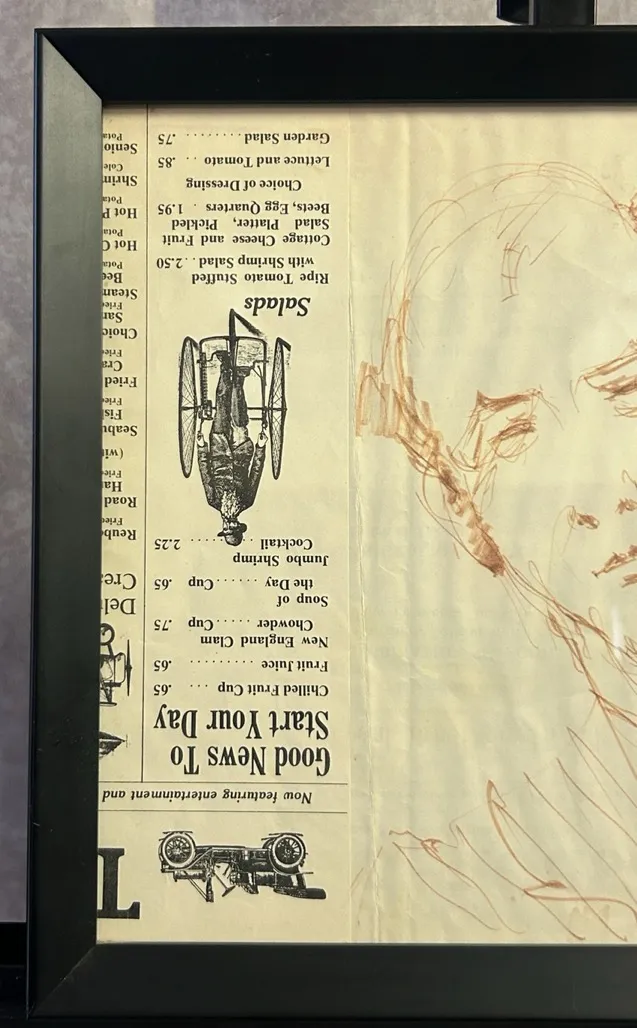 T
Now featuring entertainment and
Good News To
Start Your Day
Chilled Fruit Cup ... .65
Fruit Juice .......... .65
New England Clam
Chowder .....Cup .75
Soup of
the Day ......Cup .65
Jumbo Shrimp
Cocktail ......... 2.25
Salads
Ripe Tomato Stuffed
with Shrimp Salad ..2.50
Cottage Cheese and Fruit
Salad Platter, Pickled
Beets, Egg Quarters . 1.95
Choice of Dressing
Lettuce and Tomato .. .85
Garden Salad ........ .75
Delu
Crea
Reub
Fried
Road
Ha
Fried
(wit
Seabu
Fis
Fried
Fried
Cra
Fried
Choic
San
Fried
Steam
Bee
Pota
Hot
Pota
Hot
Pota
Shrim
Cole
Senio
Pota